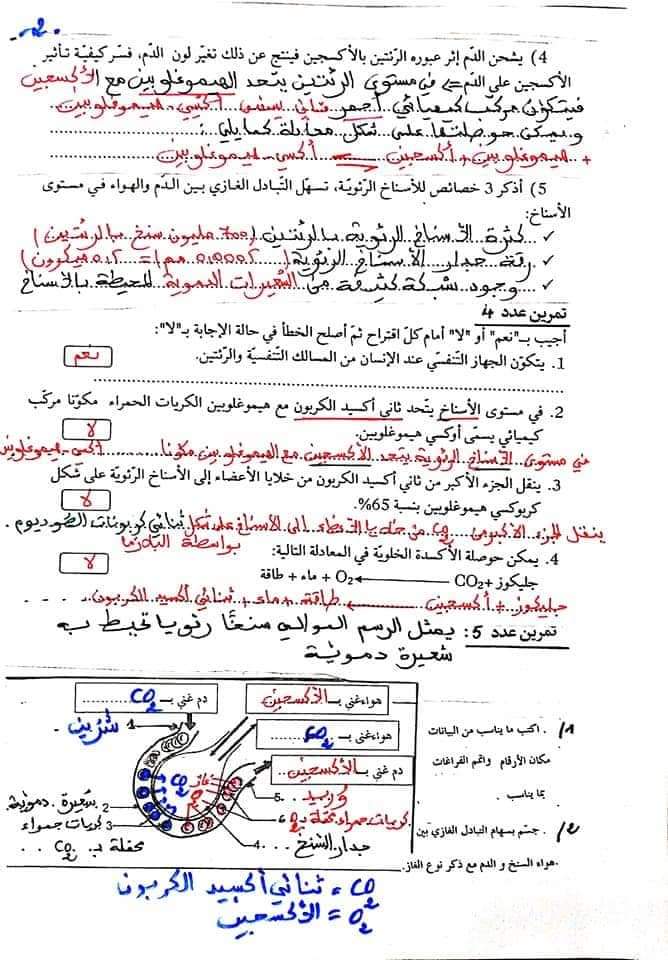 -2-
4) يشحن الدّم إثر عبوره الرّئتين بالأكسجين فينتج عن ذلك تغيّر لون الدّم، فسّر كيفيّة تأثير
الأكسجين على الدّم => في مستوى الرئتين يتحد الهيموغلوبين مع الأكسجين
فيتكون مركب كيميائي أحمر قاني يسمى أكسي-هيموغلوبين
ويمكن حوصلتها على شكل معادلة كما يلي:
هيموغلوبين + أكسجين ⇌ أكسي-هيموغلوبين
5) أذكر 3 خصائص للأسناخ الرّئويّة، تسهّل التّبادل الغازي بين الدّم والهواء في مستوى
الأسناخ:
✓ كثرة الأسناخ الرئوية بالرئتين (700 مليون سنخ بالرئتين)
✓ رقة جدار الأسناخ الرئوية (0,0002 مم) = 0,2 ميكرون)
✓ وجود شبكة كثيفة من الشعيرات الدموية المحيطة بالأسناخ
تمرين عدد 4
أجيب بـ"نعم" أو "لا" أمام كلّ اقتراح ثمّ أصلح الخطأ في حالة الإجابة بـ"لا":
1. يتكوّن الجهاز التّنفّسي عند الإنسان من المسالك التنفسيّة والرّئتين.
نعم
2. في مستوى الأسناخ يتّحد ثاني أكسيد الكربون مع هيموغلوبين الكريات الحمراء مكوّنا مركّب
كيميائي يسمّى أوكسي هيموغلوبين.
لا
في مستوى الأسناخ الرئوية يتحد الأكسجين مع الهيموغلوبين مكونا أكسي-هيموغلوبين
3. ينقل الجزء الأكبر من ثاني أكسيد الكربون من خلايا الأعضاء إلى الأسناخ الرّئويّة على شكل
كربوكسي هيموغلوبين بنسبة 65%.
لا
ينقل الجزء الأكبر من CO₂ من خلايا الأعضاء إلى الأسناخ على شكل ثنائي كربونات الصوديوم.
بواسطة البلازما
4. يمكن حوصلة الأكسدة الخلويّة في المعادلة التالية:
لا
جليكوز + CO₂ ⟵ O₂ + ماء + طاقة
جليكوز + أكسجين ← طاقة + ماء + ثنائي أكسيد الكربون
تمرين عدد 5: يمثل الرسم الموالي سنخا رئويا تحيط به
شعيرة دموية
دم غني بـ CO₂
هواء غني بـ الأكسجين
هواء غني بـ CO₂
دم غني بـ الأكسجين
1 شريان
CO₂
غاز
O₂
5 وريد
2 شعيرة دموية
6 كريات حمراء محملة بـ O₂
3 كريات حمراء
محملة بـ CO₂
4 جدار السنخ
1/ . اكتب ما يناسب من البيانات
مكان الأرقام واتمم الفراغات
بما يناسب.
2/ . جسّم بسهام التبادل الغازيّ بين
هواء السنخ و الدم مع ذكر نوع الغاز.
CO₂ = ثنائي أكسيد الكربون
O₂ = الأكسجين